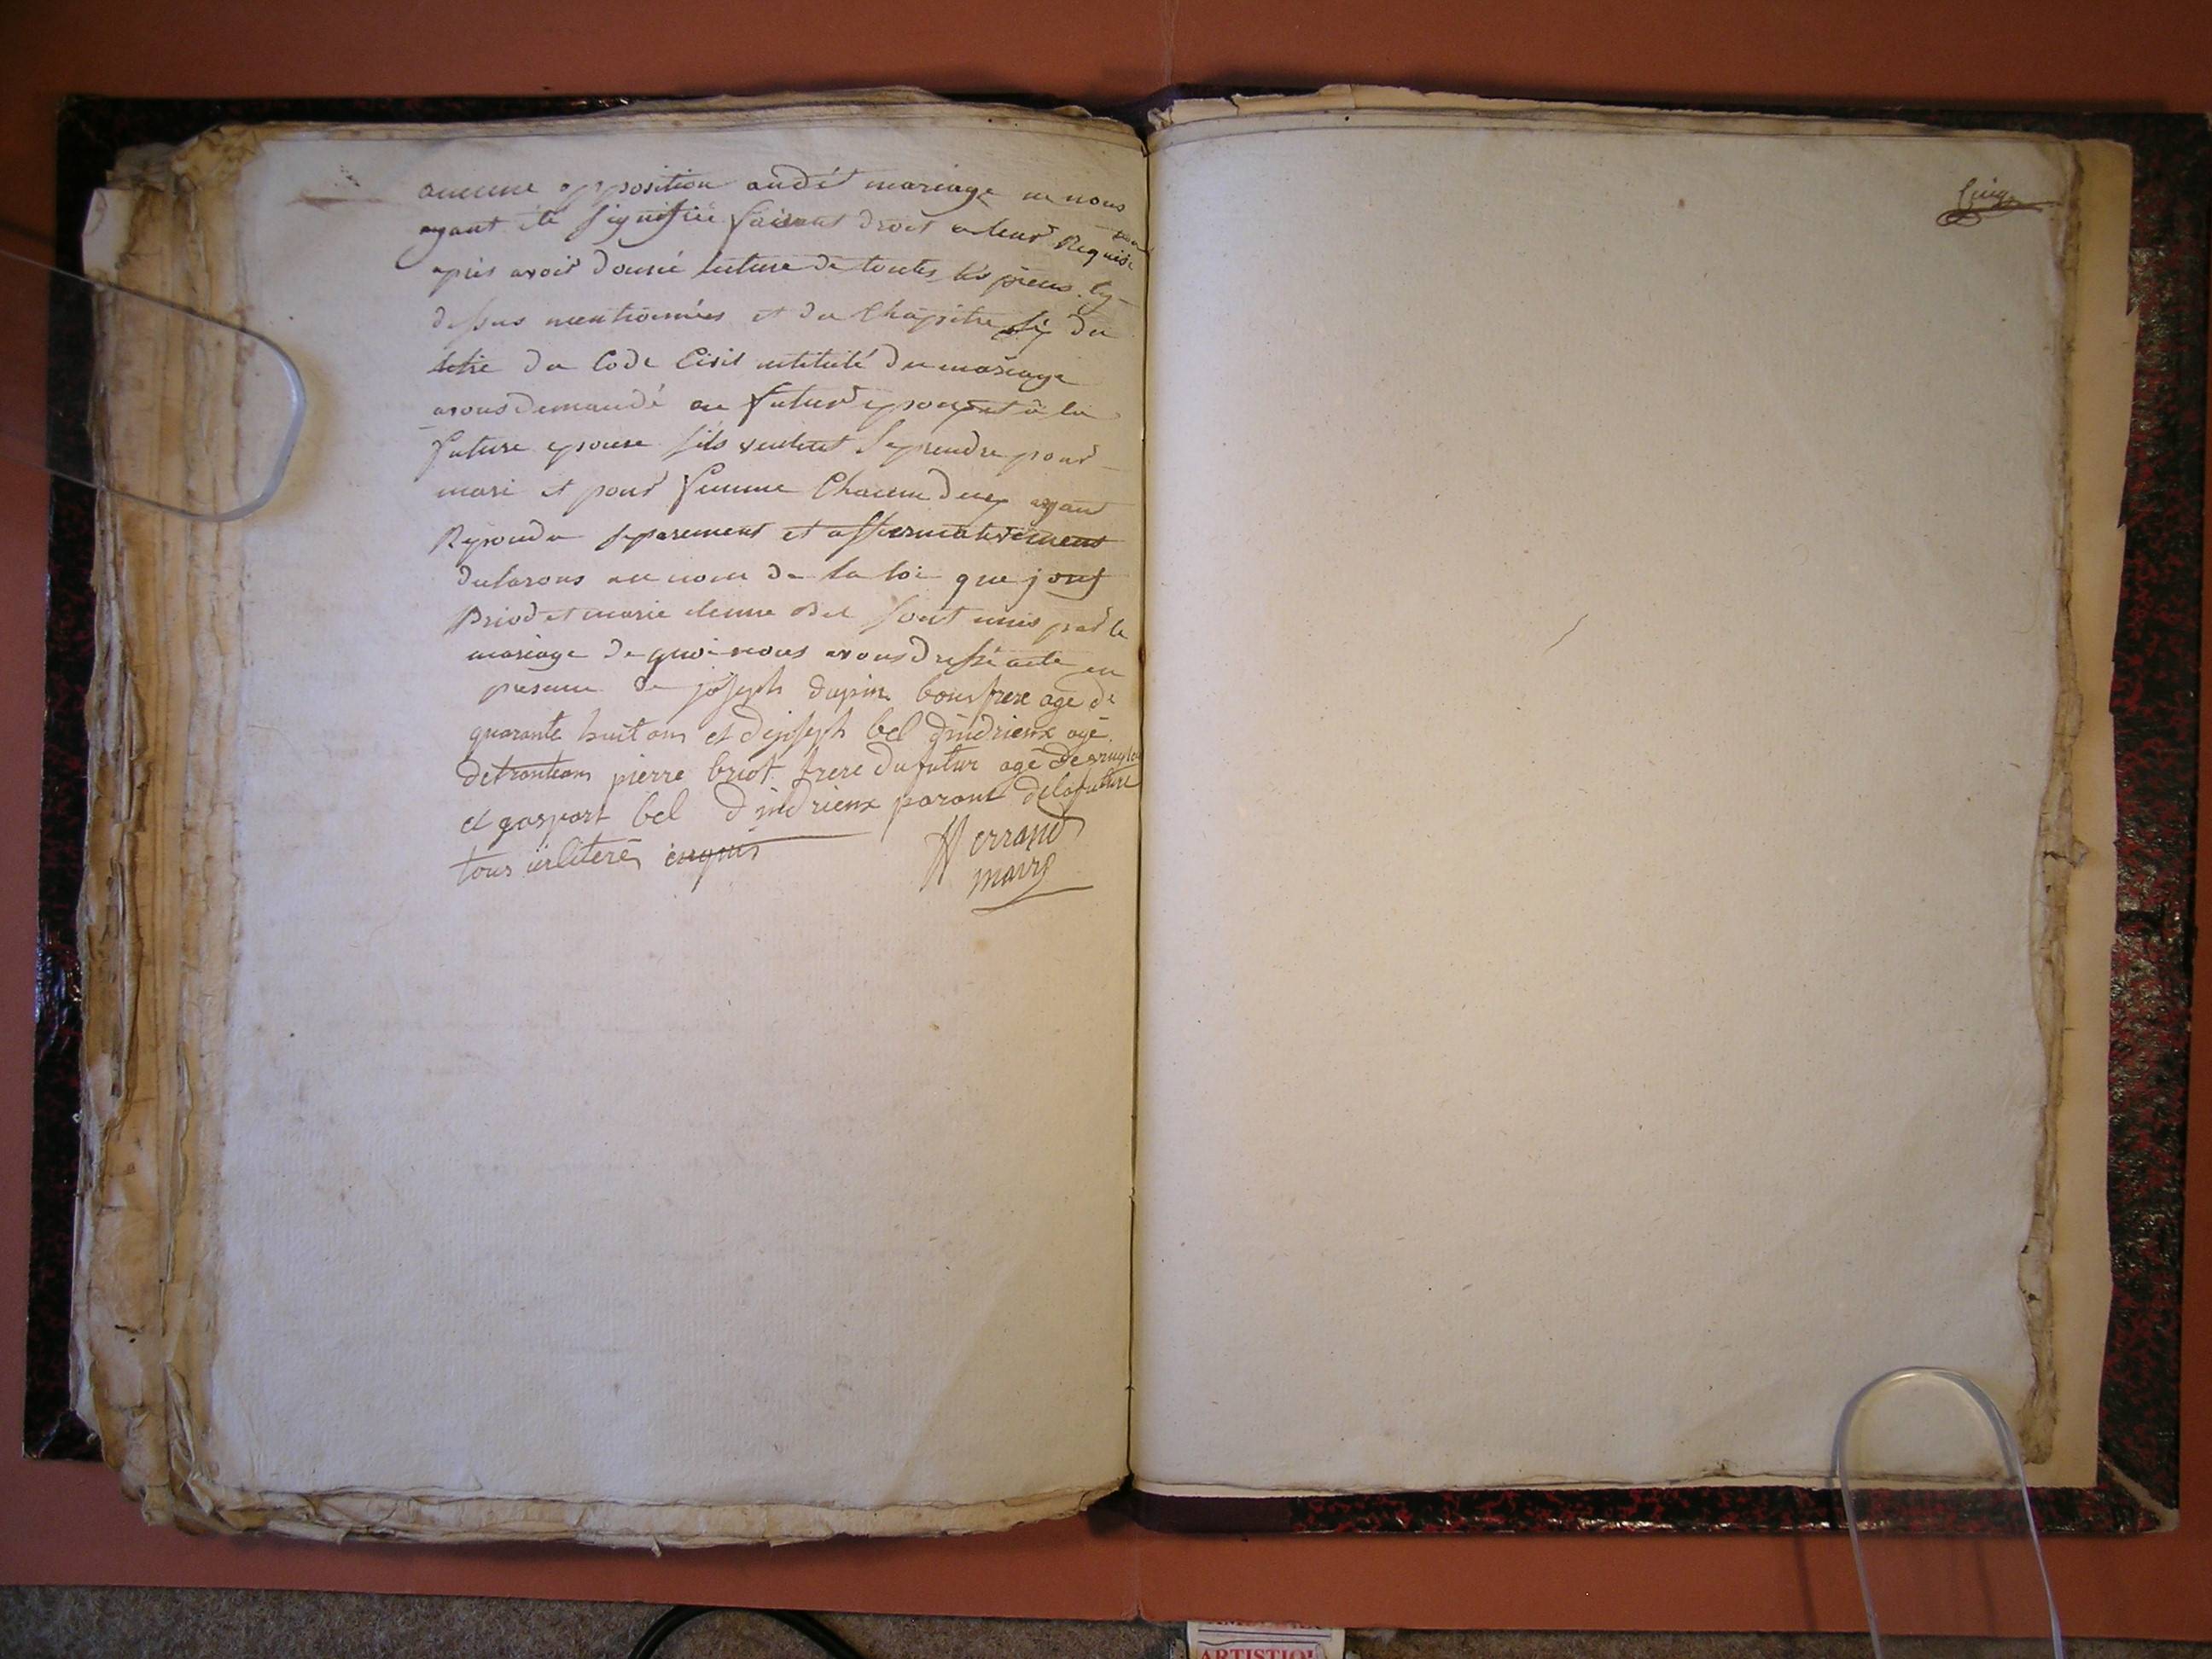 aucune opposition audit mariage ne nous
ayant été signifiée faisant droit a leur Requisi
aprés avoir donné lecture de toutes les pieces cy-
dessus mentionnées et du Chapitre six du
titre du Code Civil intitulé du mariage
avons demandé au futur epoux et à la
future epouse s'ils veulent se prendre pour
mari et pour femme Chacun deux ayant
Repondu separement et affirmativement
declarons au nom de la loi que
Briod et marie bel sont unis par le
mariage de quoi nous avons dressé acte en
presence de joseph dupin beaufrere agé de
quarante huit ans et de joseph bel dindrieux agé
de trante ans pierre briot frere du futur agé de
et gaspart bel dindrieux parant de la future
tous illiterés enquis
Herrand
maire